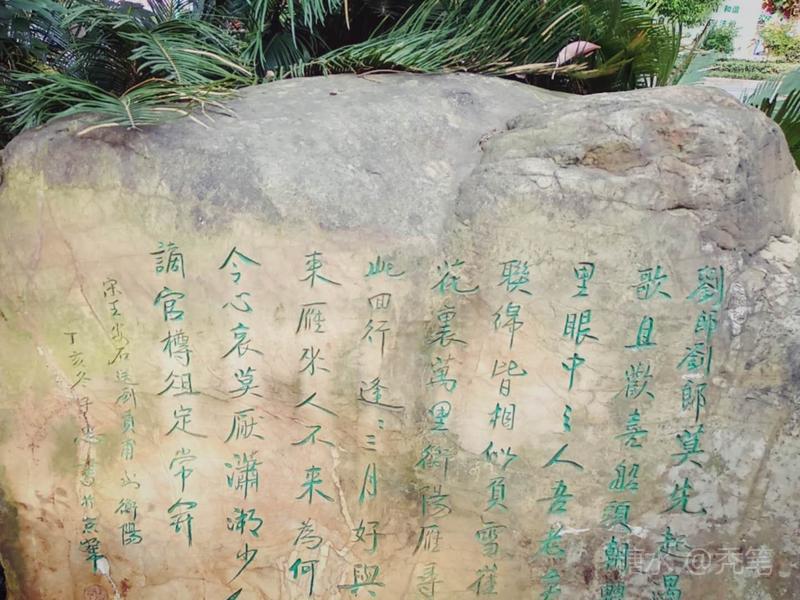 劉郎劉郎莫先起
歌且歡喜船頭朝
里眼中之人吾老矣
聯綿皆相似負雪崔
花裏萬里衡陽雁尋
此回行逢二三月好與
來雁來人不來為何
令心哀莫厭瀟湘少人
謫官樽俎定常開
宋王安石送劉貢甫 衡陽
丁亥冬 書於京華
和谐
@秃笔